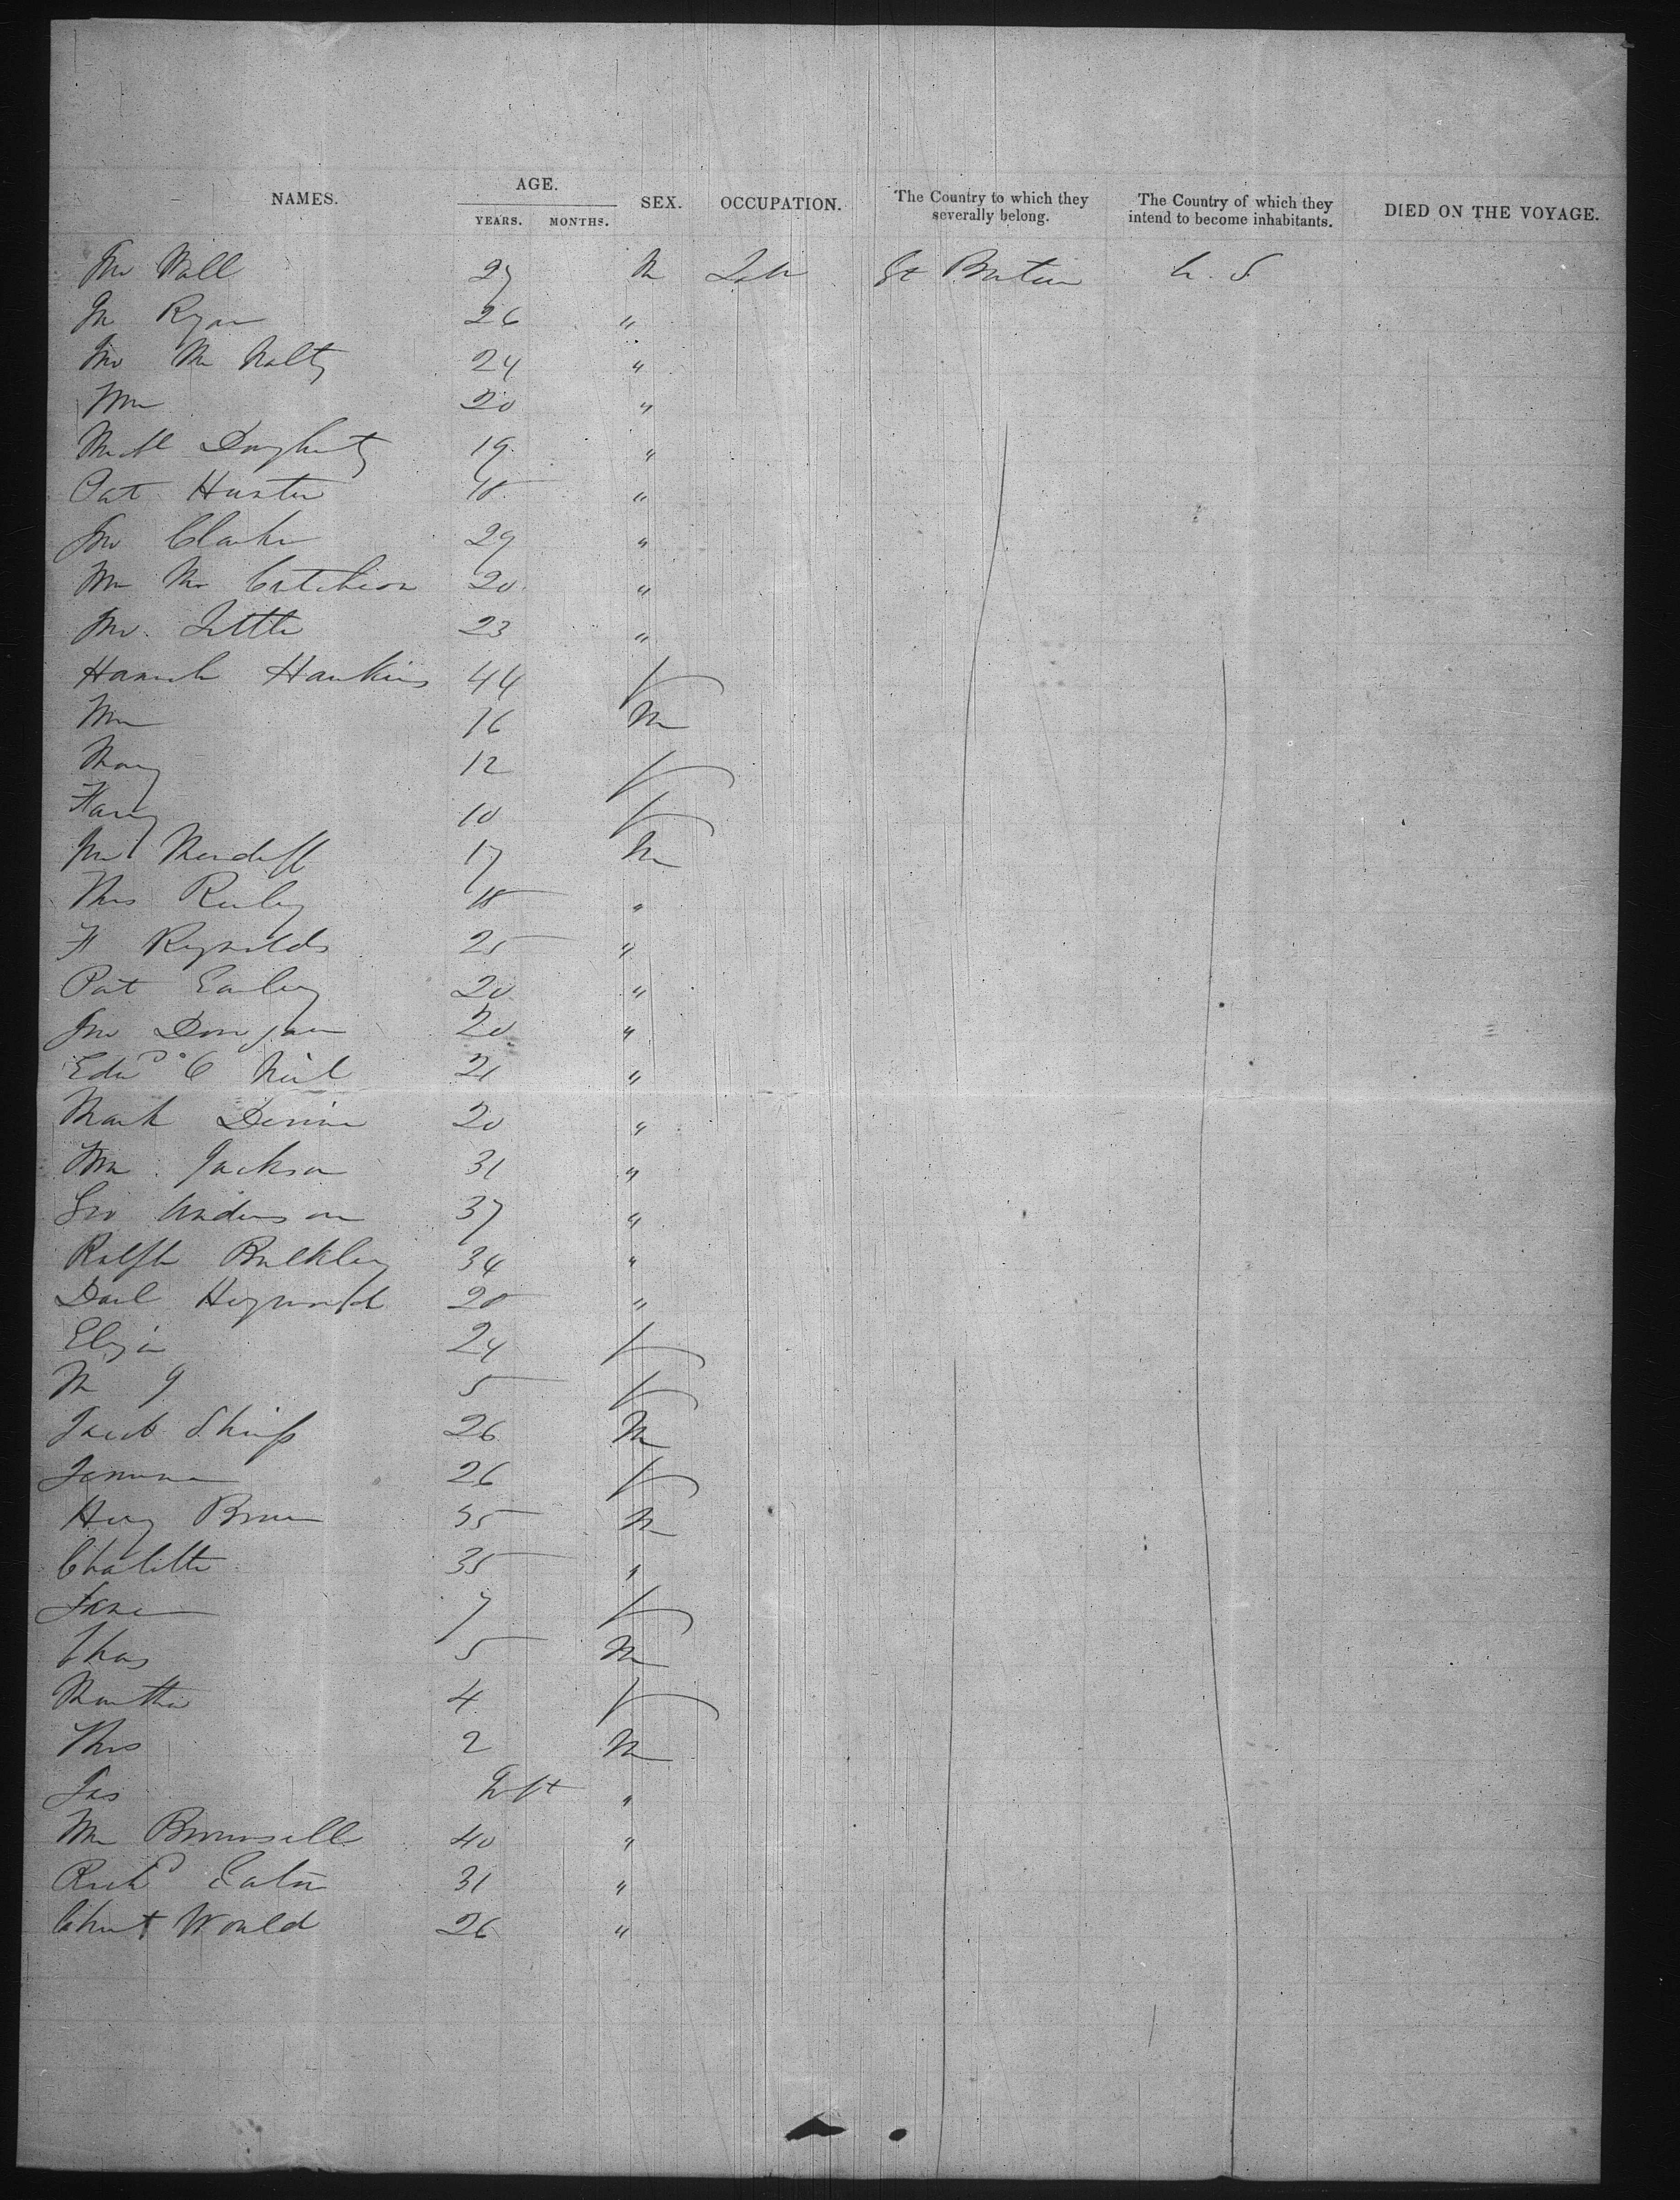 NAMES. AGE. SEX. OCCUPATION. The Country to which they severally belong. The Country of which they intend to become inhabitants. DIED ON THE VOYAGE.
YEARS. MONTHS.
Jno Wall 27 M Lab Gt Britain U. S
Jno Ryan 26 "
Jno Mc Nalty 24 "
Wm 20 "
Michl Dougherty 19 "
Pat Hunter 18 "
Jno Clarke 29 "
Wm Mc Cutcheon 20 "
Jno Little 23 "
Hannah Hawkins 44 f
Wm 16 M
Mary 12 f
Fanny 10 f
Jno 17 M
Thos Reiley 18 "
F Reynolds 25 "
Pat Earley 20 "
Jno Donegan 20 "
Edwd O Neil 21 "
Mark Devine 20 "
Wm Jackson 31 "
Geo Anderson 37 "
Ralph Bulkley 34 "
Danl 28 "
Eliza 24 f
M J 5 f
Jacob 26 M
Jemima 26 f
Hry Brown 35 M
Chalotte 35 "
Jane 7 f
Chas 5 M
Martha 4 f
Thos 2 M
Jas Inft "
Wm Brownsell 40 "
Richd Eaton 31 "
Would 26 "